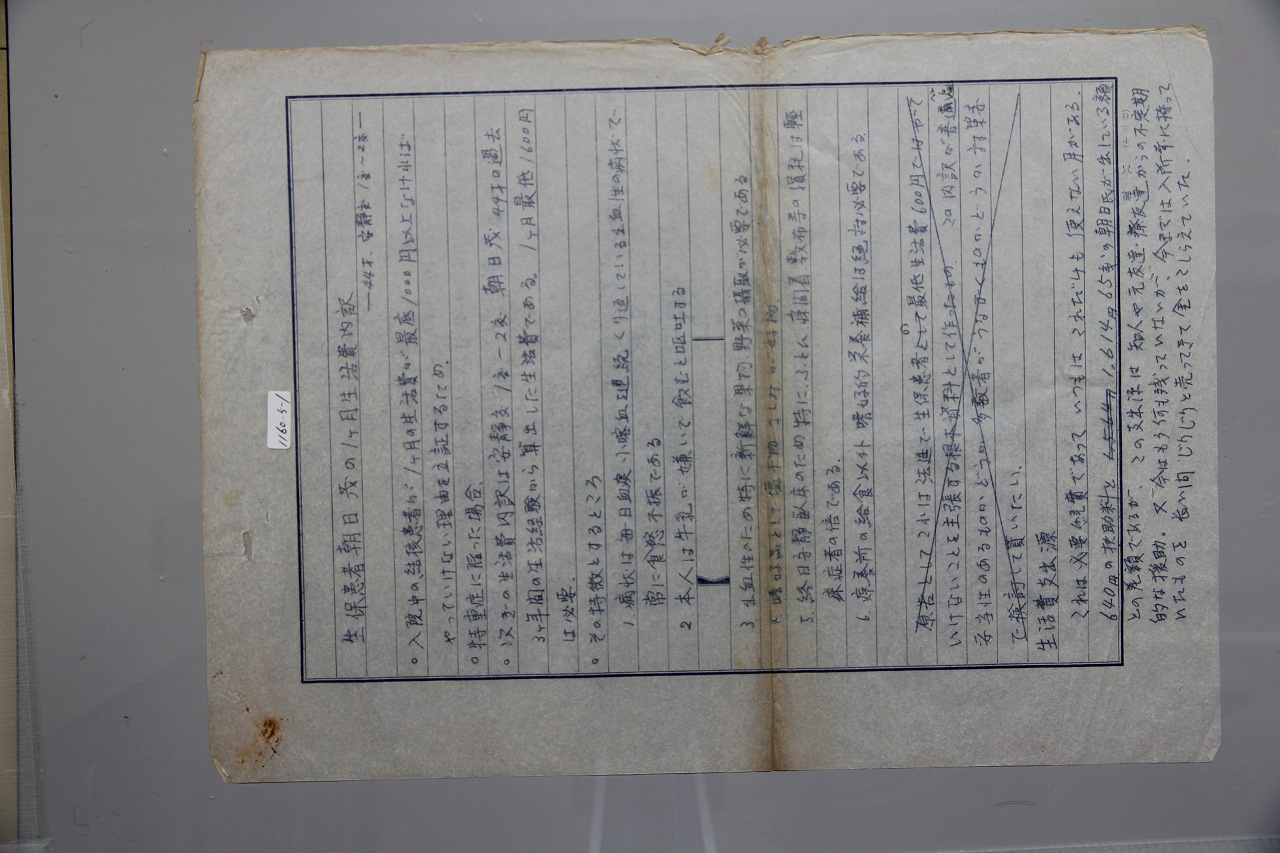 1160-5-1
生保患者朝日茂の1ヶ月生活費内訳
―44才、安静度1度~2度―
○入院中の結核患者が1ヶ月の生活費が最底1000円以上なければ
やっていけない理由を立証するため、
○特重症に陥った場合、
○次の生活費内訳は安静度1度―2度 朝日茂・44才の過去
3ヶ年間の生活経験から算出した生活費である。1ヶ月最低1600円
は必要、
○その特徴とするところ
1. 病状は毎日血痰、小喀血を連続くり返している出血性の病状で
常に食慾不振である
2 本人は牛乳が嫌いで飲むと嘔吐する
3. 出血性のため特に新鮮な果物 野菜の攝取が必要である
4. 嗜好品として
5. 終日安静臥床のため特に、ふとん 病間着 敷布等の損耗は軽
症者の倍である。
6. 療養所の給食以外 嗜好的栄養補給は絶対必要である。
原告としてこれは法進で生保患者としての最低生活費600円ではやって
いけないことを主張する根本資料として作ったもの この内訳が普遍
妥当性のあるものかどうか、多数者がうなずくものかどうか対策委
で検討して貰いたい、
生活費支出源
これは必要経費であって いつもは これだけも使えない月がある。
640円の扶助料と 1,614円65銭の朝日氏が出している額
との差額であるが、この支出源は知人や元友達・療友達からの不定期
的な援助。又 今はもう何も残っていないが、今までは入所時に持って
いたものを 長い間 じりじりと売ってきて金をこしらえていた。